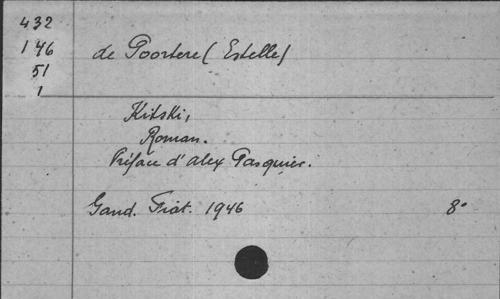 432
146
51
1
de Poortere (Estelle)
Kitski,
Roman.
Préface d'Alex Pasquier.
Gand. Fiat. 1946 8°